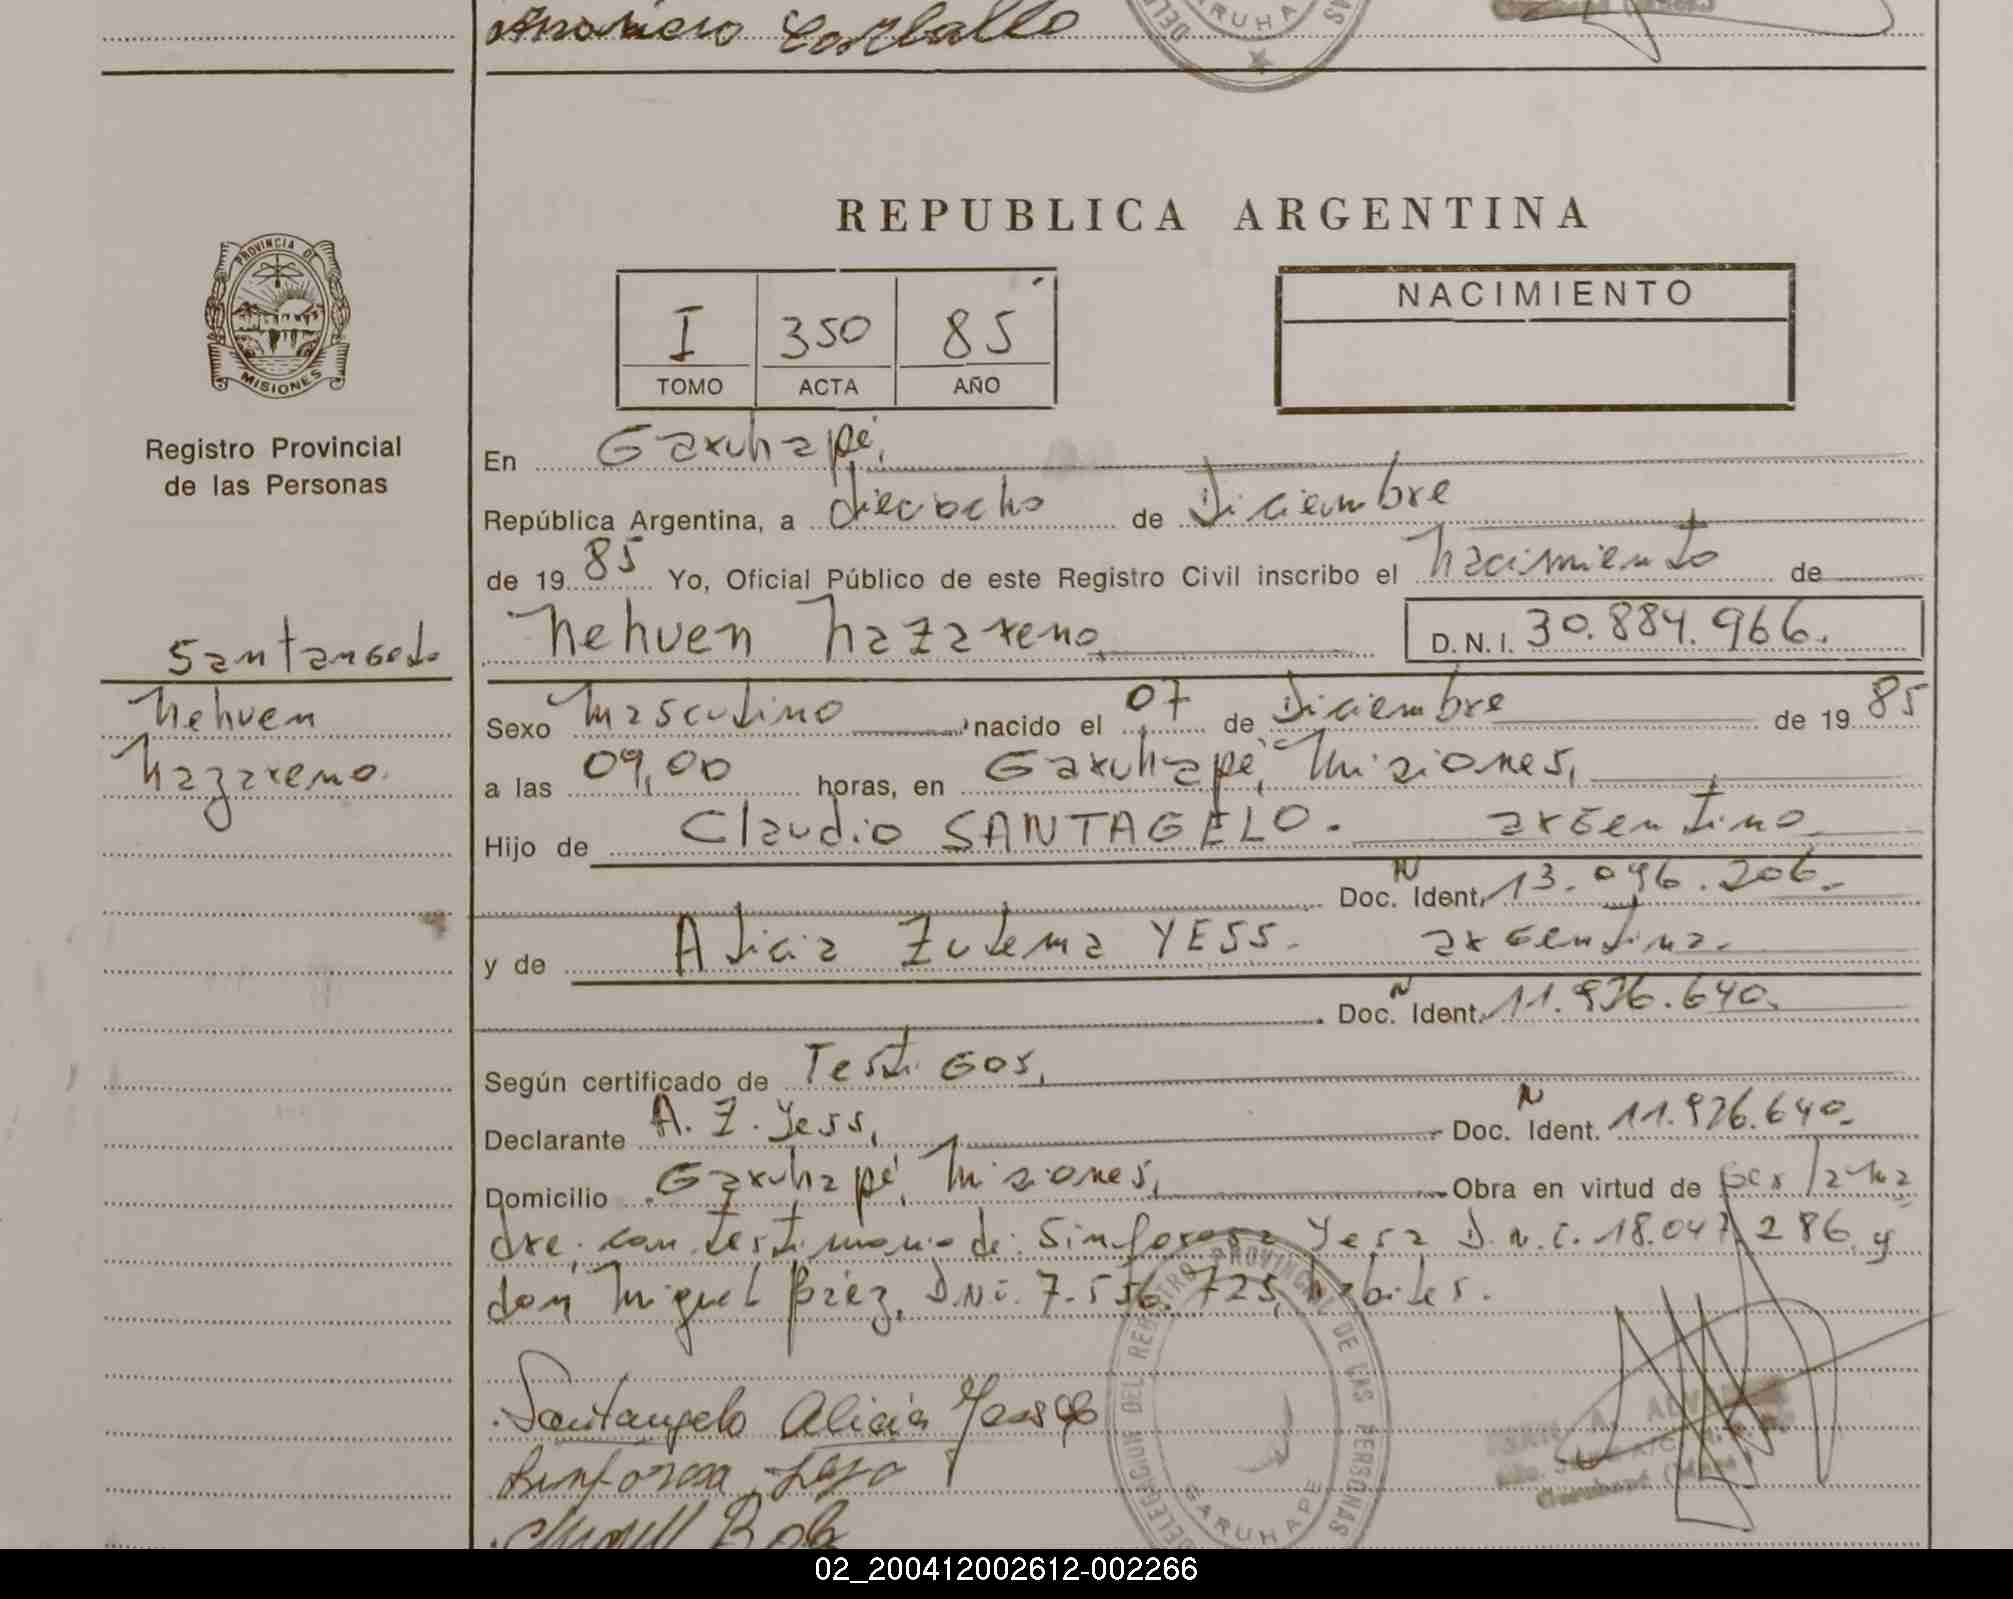 Carballo
DELE
GARUHA
AS
REPUBLICA ARGENTINA
PROVINCIA DE
MISIONES
Registro Provincial
de las Personas
I 350 85
TOMO ACTA AÑO
NACIMIENTO
En Garuhapé,
República Argentina, a dieciocho de Diciembre
de 19 85 Yo, Oficial Público de este Registro Civil inscribo el nacimiento de
Nehuen Nazareno D.N.I. 30.884.966.
Santangelo
Nehuen
Nazareno.
Sexo Masculino, nacido el 07 de Diciembre de 19 85
a las 09,00 horas, en Garuhapé, Misiones,
Hijo de Claudio SANTAGELO. argentino
Doc. N Ident. 13.096.206.
y de Alicia Zulema YESS. argentina.
Doc. N Ident. 11.936.640.
Según certificado de Testigos,
Declarante A. Z. Yess, Doc. N Ident. 11.936.640.
Domicilio Garuhapé, Misiones, Obra en virtud de ser la ma
dre, con testimonio de: Sinforosa Yesa D.N.I. 18.047.286 y
don Miguel Báez, DNI. 7.556.725, hábiles.
Santangelo Alicia Yess
DELEGACION DEL REGISTRO PROVINCIAL DE LAS PERSONAS
GARUHAPE
02_200412002612-002266